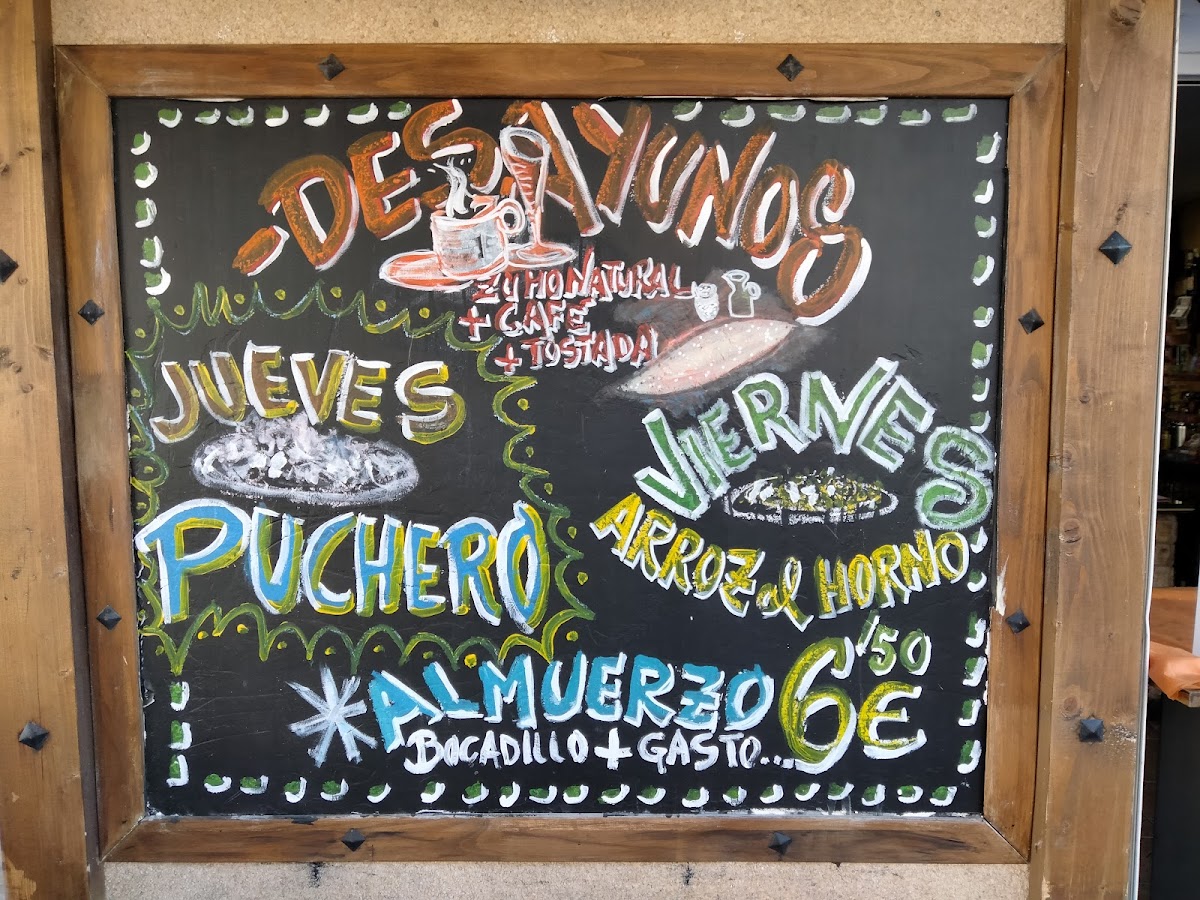 -DESAYUNOS
ZUMO NATURAL
+ CAFE
+ TOSTADA
JUEVES
PUCHERO
VIERNES
ARROZ al HORNO
*ALMUERZO
BOCADILLO + GASTO... 6'50 €